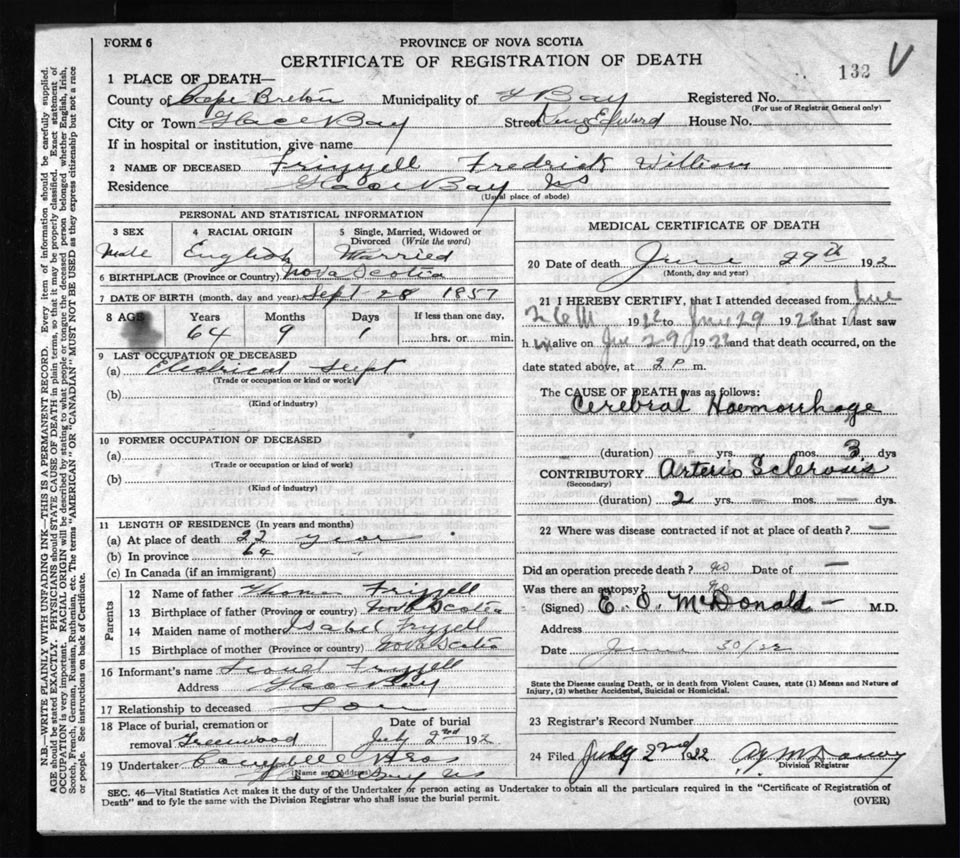 FORM 6
PROVINCE OF NOVA SCOTIA
CERTIFICATE OF REGISTRATION OF DEATH
132 V
1 PLACE OF DEATH—
County of Cape Breton Municipality of G Bay Registered No.
(For use of Registrar General only)
City or Town Glace Bay Street King Edward House No.
If in hospital or institution, give name
2 NAME OF DECEASED Frizzell Fredrick William
Residence Glace Bay NS
(Usual place of abode)
PERSONAL AND STATISTICAL INFORMATION
3 SEX Male
4 RACIAL ORIGIN English
5 Single, Married, Widowed or Divorced (Write the word) Married
6 BIRTHPLACE (Province or Country) Nova Scotia
7 DATE OF BIRTH (month, day and year) Sept 28 1857
8 AGE Years Months Days If less than one day,
64 9 1 hrs. or min.
9 LAST OCCUPATION OF DECEASED
(a) Electrical Supt
(Trade or occupation or kind or work)
(b)
(Kind of industry)
10 FORMER OCCUPATION OF DECEASED
(a)
(Trade or occupation or kind of work)
(b)
(Kind of industry)
11 LENGTH OF RESIDENCE (In years and months)
(a) At place of death 22 years
(b) In province 64 "
(c) In Canada (if an immigrant)
Parents
12 Name of father Thomas Frizzell
13 Birthplace of father (Province or country) Nova Scotia
14 Maiden name of mother Isabel Fryzell
15 Birthplace of mother (Province or country) Nova Scotia
16 Informant's name Frizzell
Address Glace Bay
17 Relationship to deceased Son
18 Place of burial, cremation or removal Greenwood
Date of burial July 2nd 192
19 Undertaker Campbell Bros
(Name and Address) G Bay NS
MEDICAL CERTIFICATE OF DEATH
20 Date of death June 29th 192
(Month, day and year)
21 I HEREBY CERTIFY, that I attended deceased from June
26th 1922 to June 29 1922 that I last saw
him alive on June 29 1922 and that death occurred, on the
date stated above, at 2 P m.
The CAUSE OF DEATH was as follows:
Cerebral Haemorrhage
(duration) — yrs. — mos. 3 dys
CONTRIBUTORY Arterio Sclerosis
(Secondary)
(duration) 2 yrs. — mos. — dys.
22 Where was disease contracted if not at place of death? —
Did an operation precede death? no Date of —
Was there an autopsy? no
(Signed) E. O. McDonald — M.D.
Address
Date June 30/22
State the Disease causing Death, or in death from Violent Causes, state (1) Means and Nature of
Injury, (2) whether Accidental, Suicidal or Homicidal.
23 Registrar's Record Number
24 Filed July 2nd 1922
Division Registrar
SEC. 46—Vital Statistics Act makes it the duty of the Undertaker or person acting as Undertaker to obtain all the particulars required in the "Certificate of Registration of
Death" and to fyle the same with the Division Registrar who shall issue the burial permit.
(OVER)
N.B.—WRITE PLAINLY WITH UNFADING INK—THIS IS A PERMANENT RECORD. Every item of information should be carefully supplied.
AGE should be stated EXACTLY. PHYSICIANS should STATE CAUSE OF DEATH in plain terms, so that it may be properly classified. Exact statement of
OCCUPATION is very important. RACIAL ORIGIN will be described by stating to what people or tongue the deceased person belonged whether English, Irish,
Scotch, French, German, Russian, Ruthenian, etc. The terms "AMERICAN" OR "CANADIAN" MUST NOT BE USED as they express citizenship but not a race
or people. See instructions on back of Certificate.